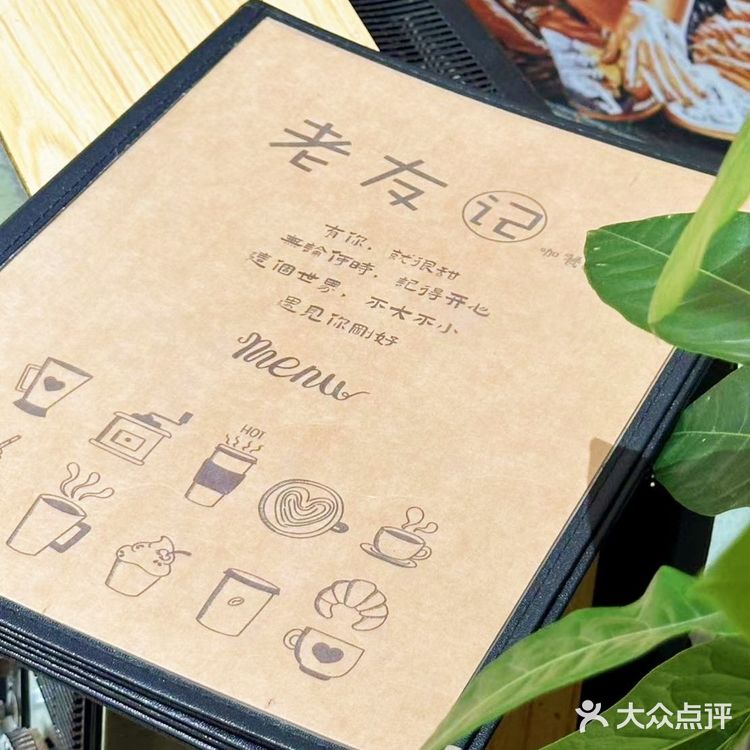 老友记
咖餐
有你，就很甜
無論何時，記得開心
這個世界，不大不小
遇見你剛好
menu
HOT
大众点评